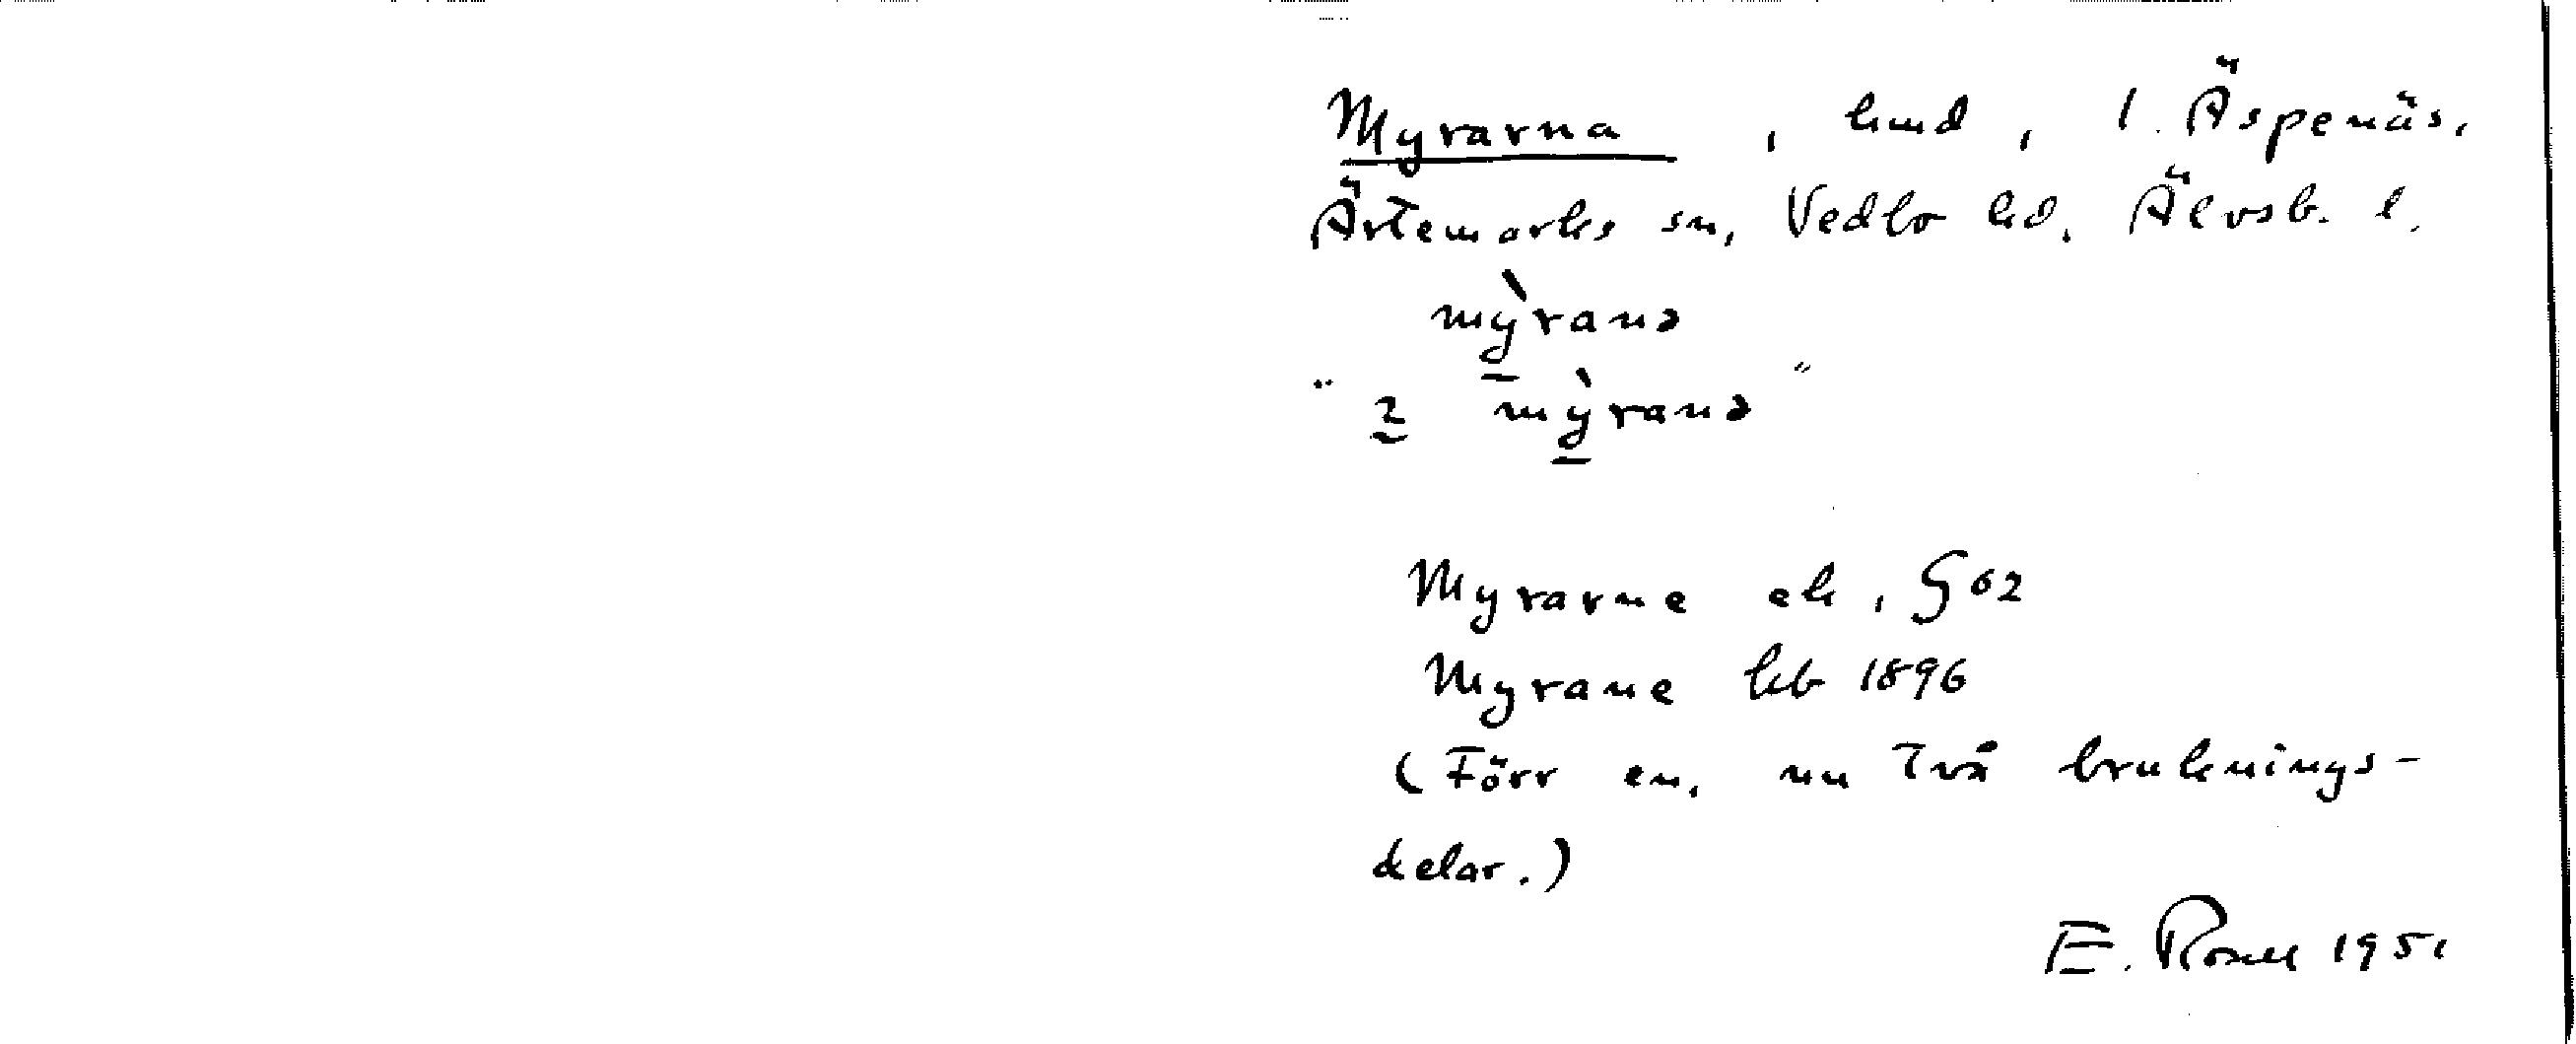 Myrarna, hmd, l. Äspenäs,
Ärtemarks sn, Vedbo hd. Älvsb. l.
mỳ̱ranə
" 2 mỳ̱ranə "
Myrarne ek, G 62
Myrane kb 1896
(Förr en, nu två bruknings-
delar.)
E. Rosell 1951